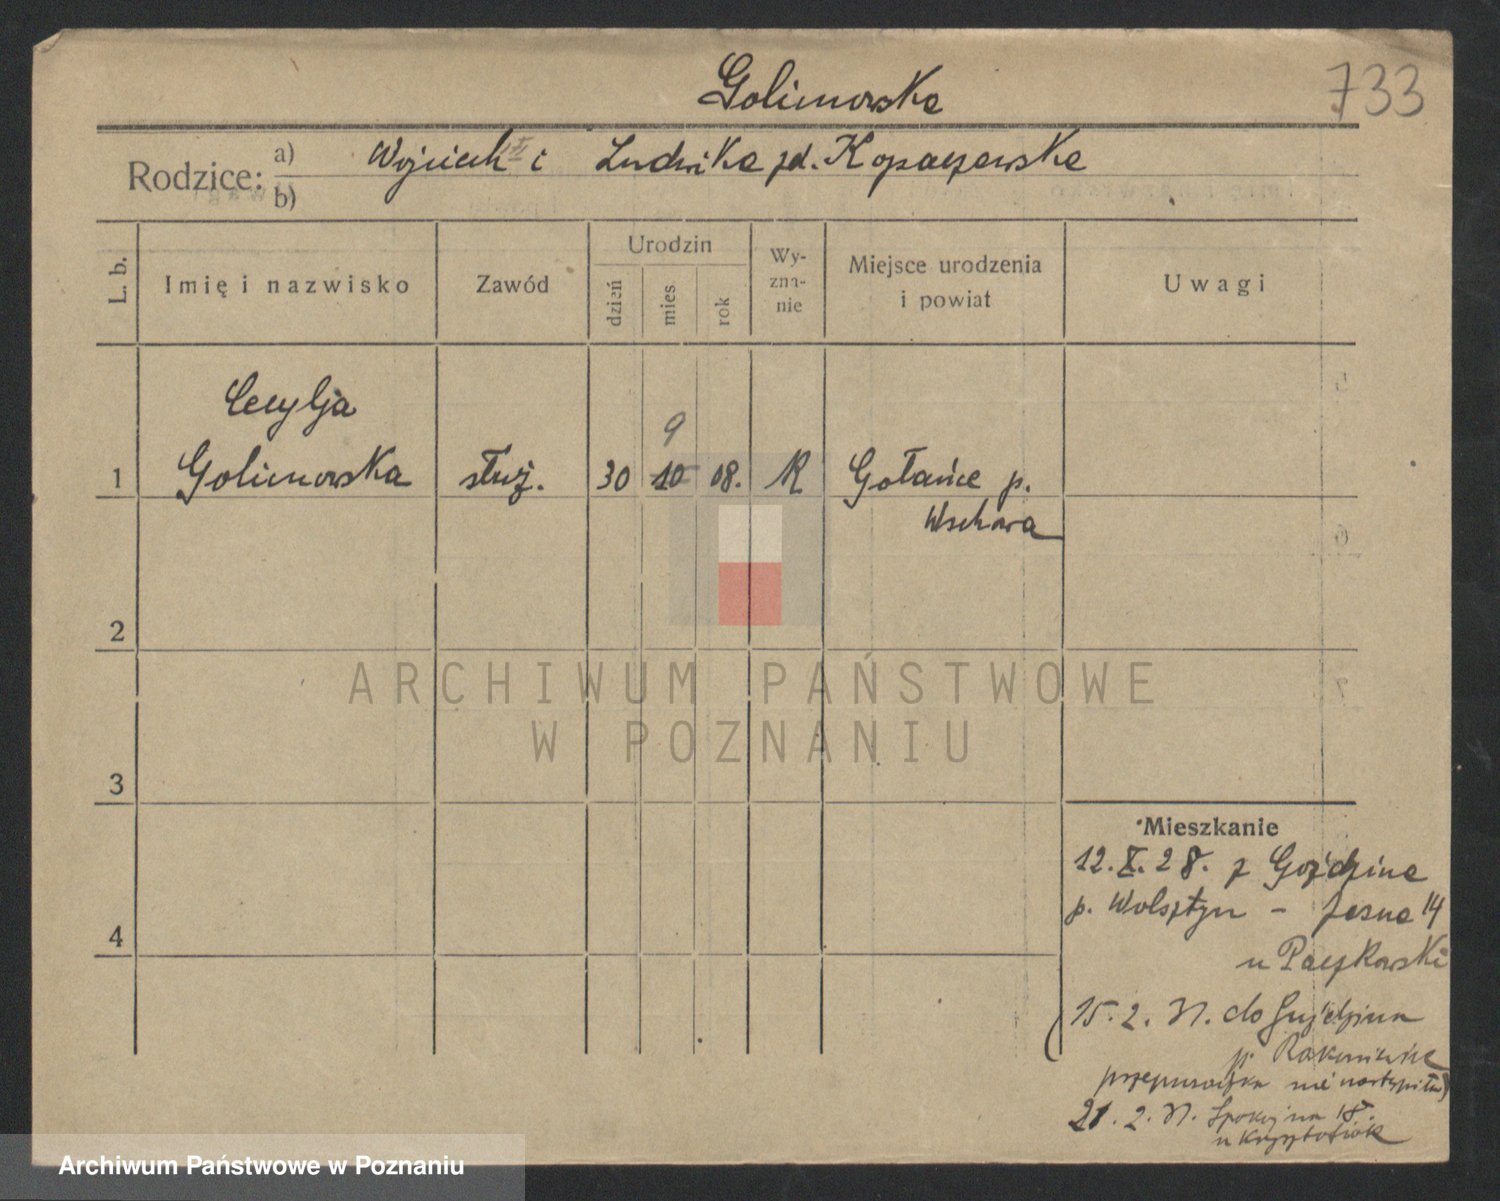 Golimowska
733
Rodzice: a) Wojciech i Ludwika zd. Kopaczewska
b)
L. b.
Imię i nazwisko
Zawód
Urodzin
dzień
mies.
rok
Wy-
zna-
nie
Miejsce urodzenia
i powiat
Uwagi
Cecylja
9
1 Golimowska służ. 30 10 08. R Gołanice p.
Wschowa
2
ARCHIWUM PAŃSTWOWE
W POZNANIU
3
4
Mieszkanie
12.X.28. z Goździna
p. Wolsztyn - Jasna 14
u Paczkowski
15.2. 31. do
p. Rakoniewice
przeprowadzka nie nastąpiła)
21.2. 31. Spokojna 18.
u Krzysztofiak
Archiwum Państwowe w Poznaniu